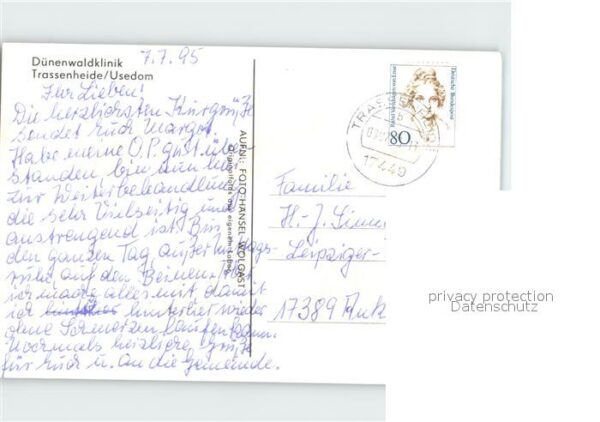 Dünenwaldklinik
Trassenheide/Usedom
7.7.95
Ihr Lieben!
Die herzlichsten Kurgrüße
sendet Euch Margot.
Habe meine O.P. gut über-
standen, bin nun hier
zur Weiterbehandlung
die sehr vielseitig und
anstrengend ist. Bin
den ganzen Tag, außer Mittags-
ruhe, auf den Beinen. Aber
ich mache alles mit, damit
ich hinterher wieder
ohne Schmerzen laufen kann.
Nochmals herzliche Grüße
für Euch u. an die Gemeinde.
AUFNL: FOTO-HANSEL WOLGAST
Deutsche Bundespost
80
17449
Familie
H.-J.
Leipziger-
17389 Ank
privacy protection
Datenschutz